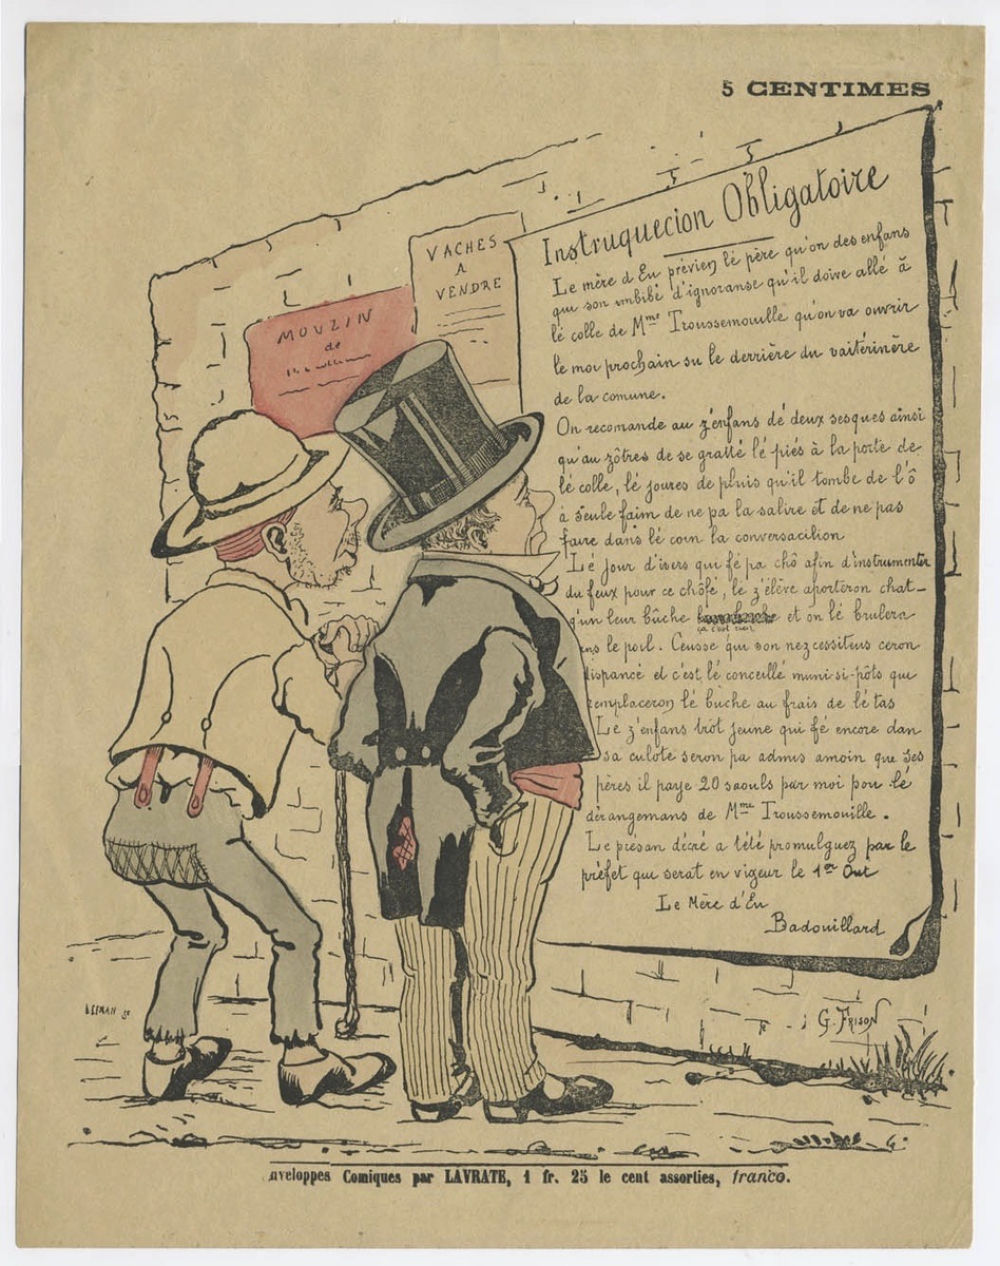 5 CENTIMES
VACHES
A
VENDRE
MOUZIN
de
Instruquecion Obligatoire
Le mère d Eu prévien lé père qu'on des enfans
qui son imbibé d'ignoranse qu'il doive allé à
lé colle de Mme Troussemouille qu'on va ouvrir
le moi prochain su le derrière du vaitérinère
de la comune.
On recomande au z'enfans dé deux sesques ainsi
qu'au zôtres de se gratté lé piés à la porte de
lé colle, lé joures de pluis qu'il tombe de l'ô
à seule faim de ne pa la salire et de ne pas
faire dans lé coin la conversacilion
Lé jour d'ivers qui fé pa chô afin d'instrumenter
du feux pour ce chôfé, le z'élève aporteron chat-
q'un leur bûche et on lé brulera
ns le poil. Ceusse qui son nezcessiteus ceron
dispancé et c'est lé conceillé muni-si-pôts qui
remplaceron lé buche au frais de lé tas
Le z'enfans trôt jeune qui fé encore dan
sa culote seron pa admis amoin que ses
pères il paye 20 saouls par moi pou lé
dérangemans de Mme Troussemouille.
Le présan décré a tété promulguez par le
préfet qui serat en vigeur le 1er Out
Le Mère d'Eu
Badouillard
G. Frison
nveloppes Comiques par LAVRATE, 1 fr. 25 le cent assorties, franco.